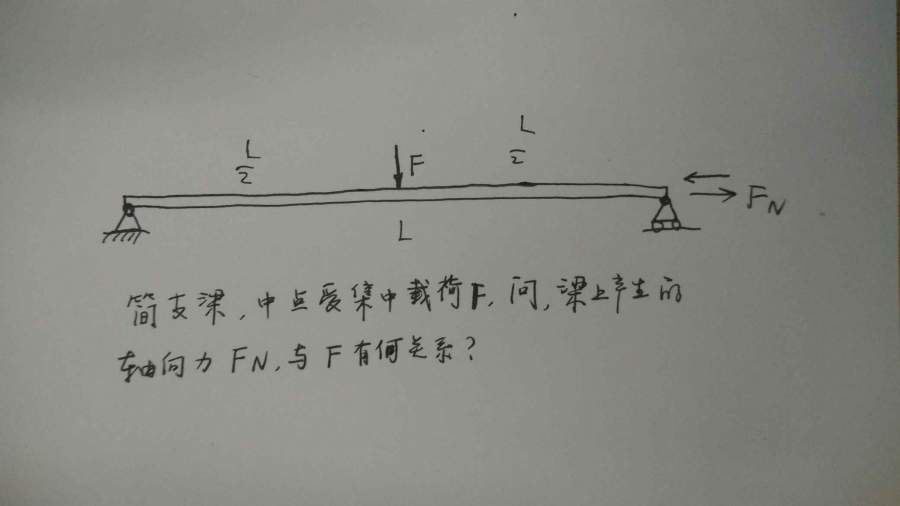 L/2
F
L/2
FN
L
简支梁,中点受集中载荷F,问,梁上产生的
轴向力FN,与F有何关系?